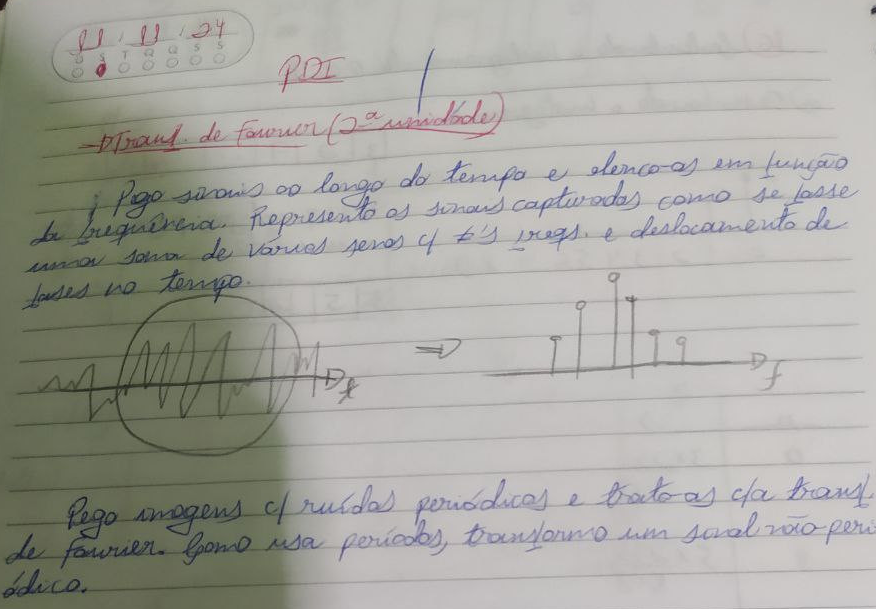 11 / 11 / 24
D S T Q Q S S
PDI
→ Transf. de Fourier (2ª unidade)
Pego sinais ao longo do tempo e elenco-as em função
da frequência. Represento os sinais capturados como se fosse
uma soma de vários senos c/ ≠'s freqs. e deslocamento de
fases no tempo.
t
f
Pego imagens c/ ruídos periódicos e trato-as c/a transf.
de Fourier. Como usa períodos, transformo um sinal não-peri
ódico.